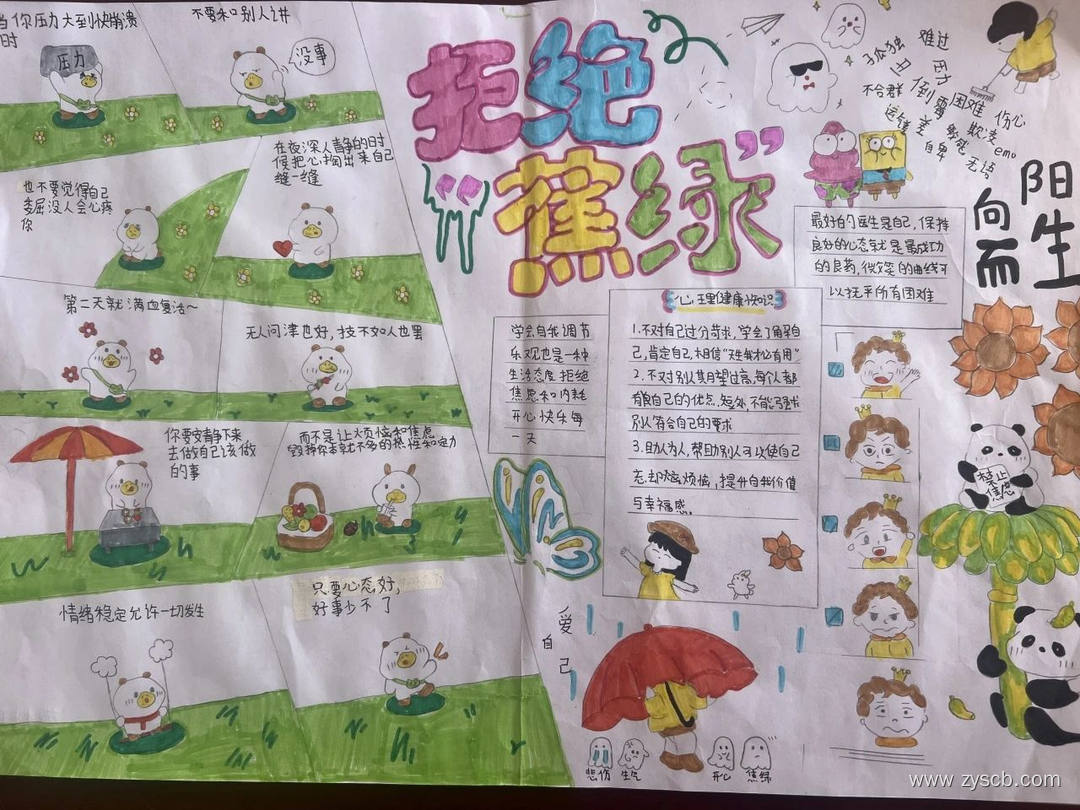 当你压力大到快崩溃
时
压力
不要和别人讲
没事
也不要觉得自己
委屈没人会心疼
你
在夜深人静的时
候把心掏出来自己
缝一缝
第二天就满血复活~
无人问津也好,技不如人也罢
你要安静下来
去做自己该做
的事
而不是让烦恼和焦虑
毁掉你本就不多的热性和定力
情绪稳定允许一切发生
只要心态好,
好事少不了
拒绝
“蕉绿”
孤独
难过
丑
压力
不合群
倒霉
困难
伤心
差
欺凌
自卑
无语
emo
向阳
而生
最好的医生是自己,保持
良好的心态就是最成功
的良药,微笑的曲线可
以抚平所有困难
学会自我调节
乐观也是一种
生活态度拒绝
焦思和内耗
开心快乐每
一天
心理健康知识
1.不对自己过分苛求,学会了解自
己,肯定自己,相信“天生我材必有用”
2.不对别人期望过高,每个人都
有自己的优点、短处,不能强求
别人符合自己的要求
3.助人为人,帮助别人可以使自己
忘却烦恼,提升自我价值
与幸福感。
禁止
焦虑
爱
自
己
悲伤
生气
开心
焦绿
www.zyscb.com